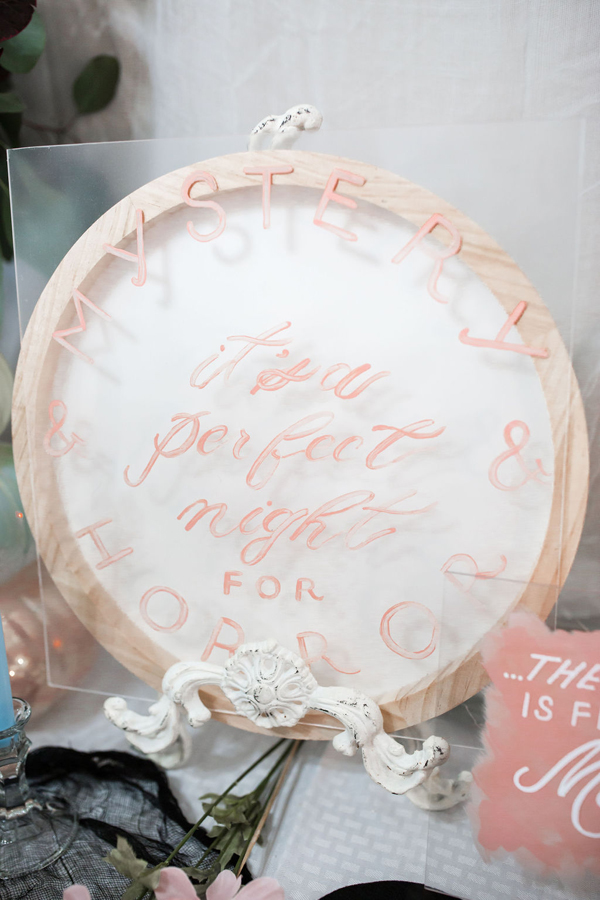 MYSTERY
& &
it's a
perfect
night
FOR
HORROR
...THE
IS